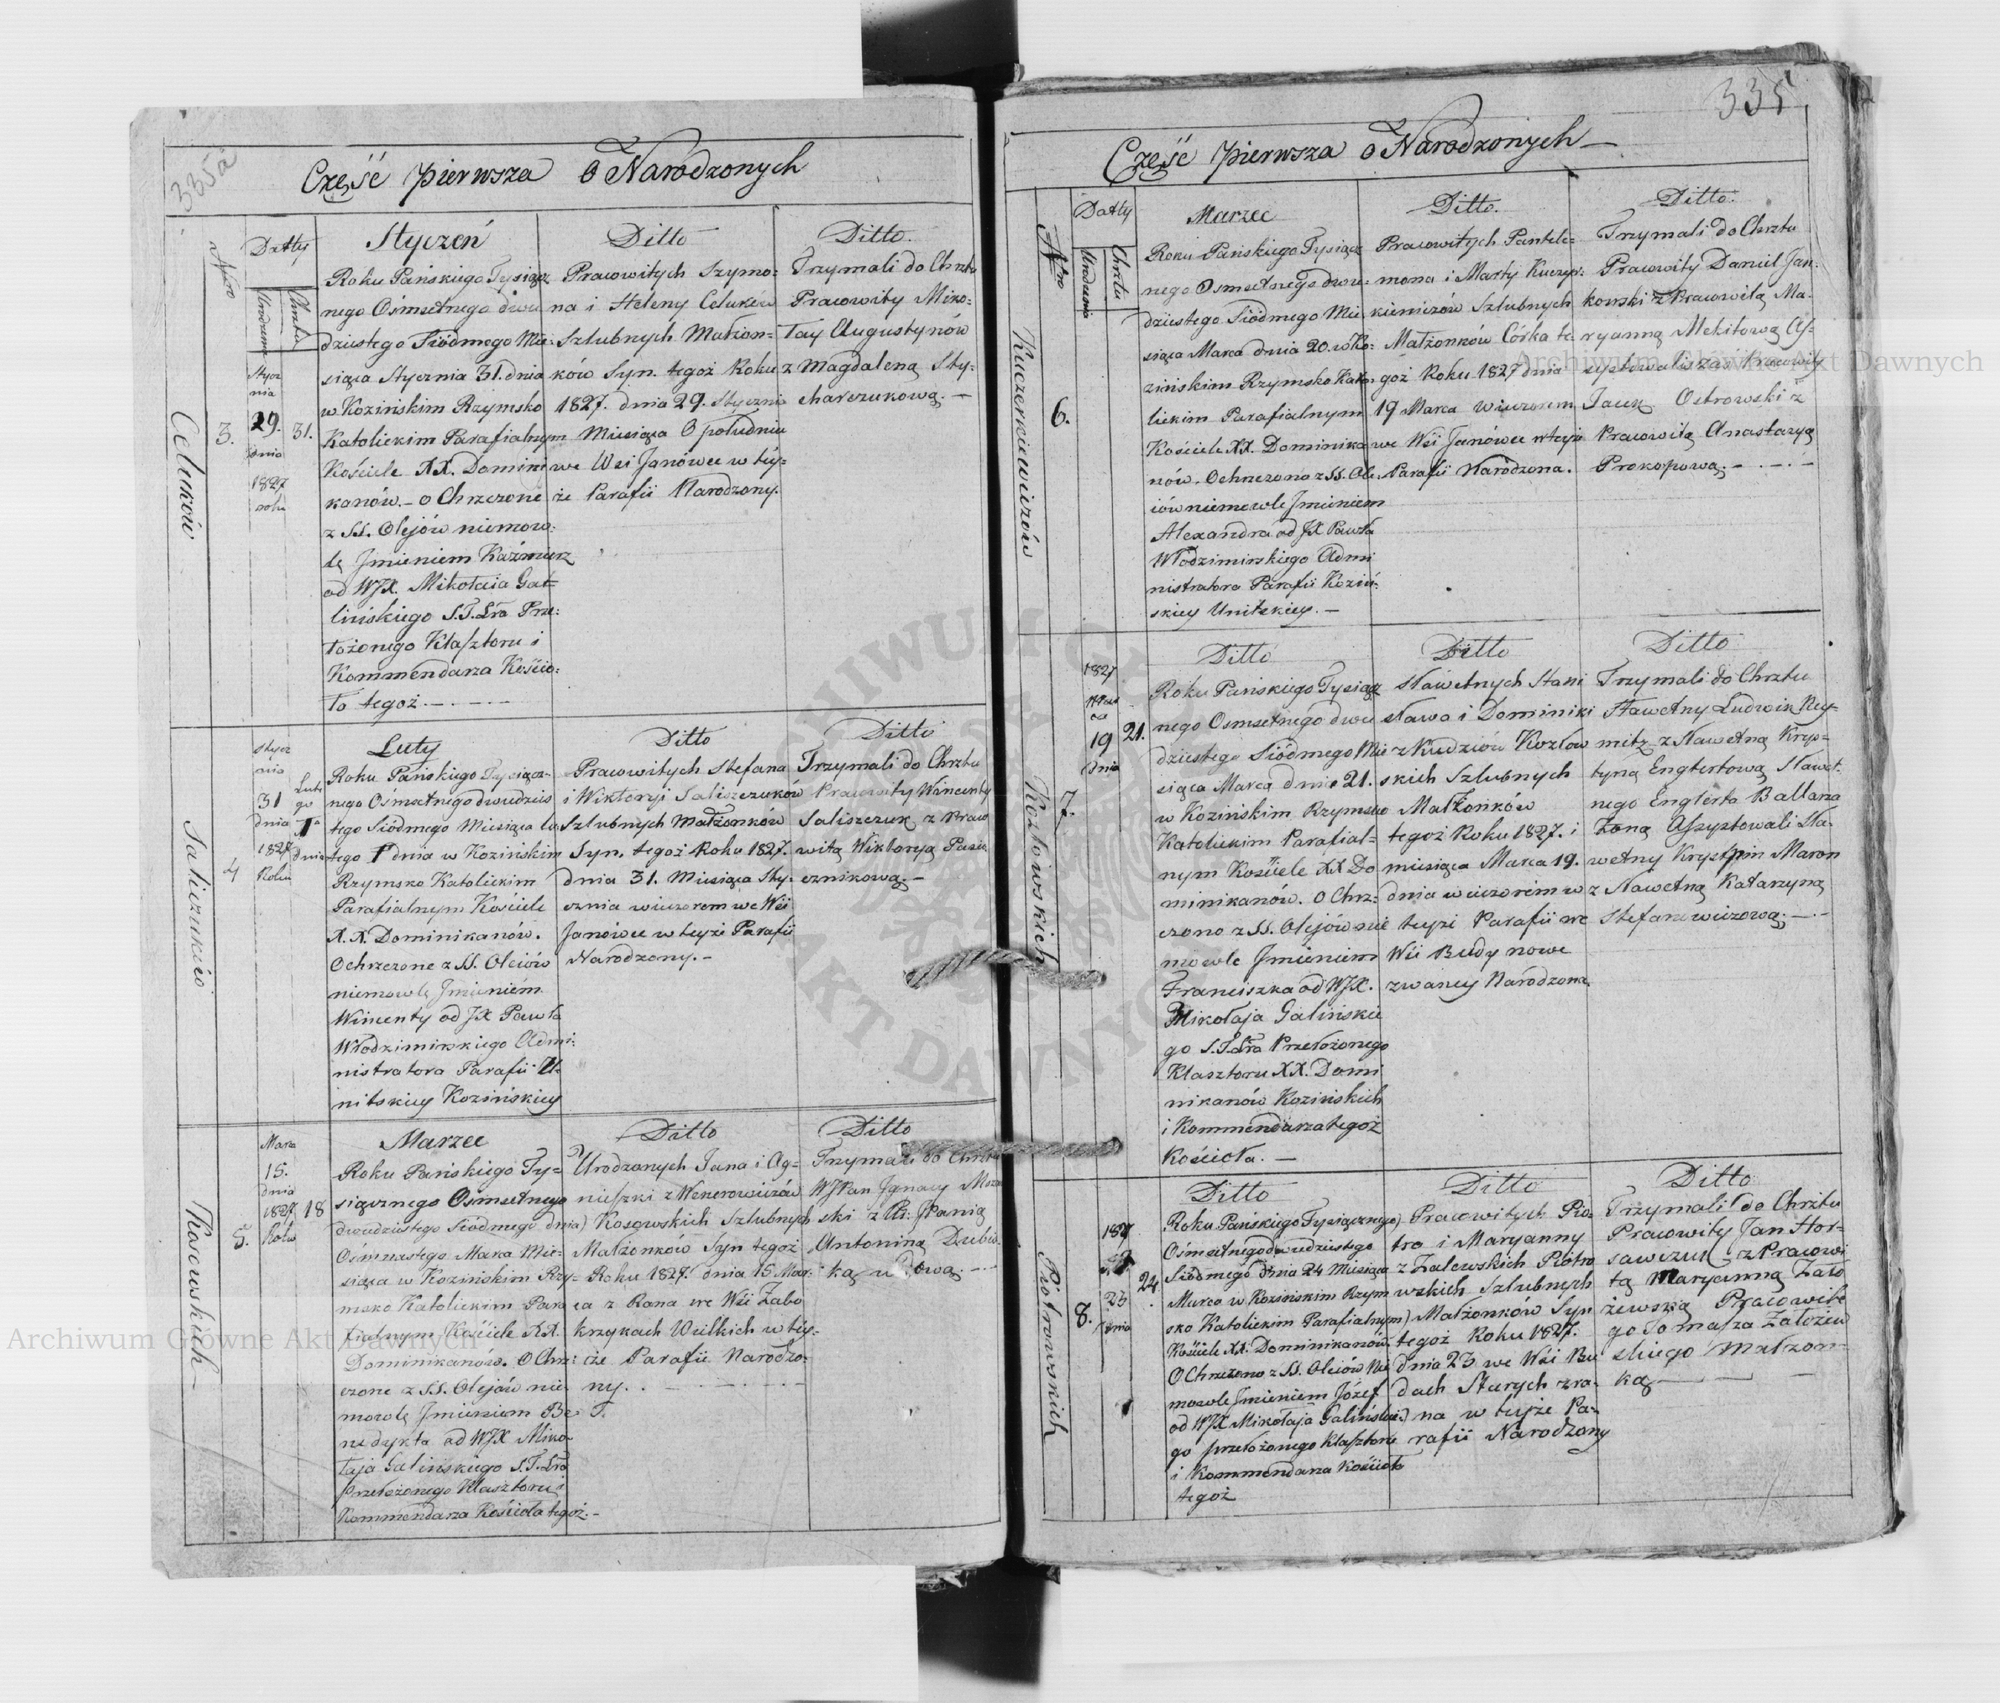 335a
Część pierwsza o Narodzonych
Nro
Datty
Urodzenia
Chrztu
Styczeń
Ditto
Ditto.
Celuków
3.
Stycz
nia
29.
dnia
1827
roku
31.
Roku Pańskiego Tysiącz
nego Ośmsetnego dwu
dziestego Siódmego Mie-
siąca Stycznia 31. dnia
w Kozińskim Rzymsko
Katolickim Parafialnym
Kościele XX. Domini
kanów. – o Chrzczone
z SS. Olejów niemow-
lę Jmieniem Kaźmierz
od WJX. Mikołaia Gal-
lińskiego S.T.Lra Prze-
łożonego Klasztoru i
Kommendarza Kościo-
ła tegoż. – . – . –
Pracowitych Szymo-
na i Heleny Celuków
Szlubnych Małżon-
ków Syn. tegoż Roku
1827. dnia 29. Stycznia
Miesiąca O południu
we Wsi Janówce w téy-
że Parafii Narodzony.
Trzymali do Chrztu
Pracowity Miko-
łay Augustynów
z Magdaleną Sty-
charczukową. –
4
Stycz
nia
31
dnia
1827
Roku
Lute
go
1
dnia
Luty
Ditto
Ditto
Roku Pańskiego Tysiącz-
nego Ośmsetnego dwudzies
tego Siódmego Miesiąca Lu
tego 1 dnia w Kozińskim
Rzymsko Katolickim
Parafialnym Kościele
X.X. Dominikanów.
Ochrzczone z SS. Oleiów
niemowlę Jmieniem
Wincenty od JX Pawła
Włodzimirskiego Admi-
nistratora Parafii U-
nitskiey Kozińskiey
Pracowitych Stefana
i Wiktoryi Saliszczuków
Szlubnych Małżonków
Syn. tegoż Roku 1827.
dnia 31. Miesiąca Sty-
cznia wieczorem we Wsi
Janówce w teyże Parafii
Narodzony. –
Trzymali do Chrztu
Pracowity Wincenty
Saliszczuk z Praco
witą Wiktoryą
cznikową. –
Kosowskich
5.
Marca
15.
dnia
1827
Roku
18
Marzec
Ditto
Ditto
Roku Pańskiego Ty-
siącznego Ośmsetnego
dwudziestego Siódmego dnia
Ośmnastego Marca Mie-
siąca w Kozińskim Rzy-
msko Katolickim Para
fialnym Kościele XX.
Dominikanów. O Chrz-
czone z SS. Olejów nie
mowlę Jmieniem Be
nedykta od WJX Miko
łaja Galińskiego S.T.Lra
Przełożonego Klasztoru i
Kommendarza Kościoła tegoż. –
Urodzonych Jana i Ag-
nieszki z Wencrowiczów
Kosowskich Szlubnych
Małżonków Syn tegoż
Roku 1827. dnia 15 Mar-
ca z Rana we Wsi Żabo
krzykach Wielkich w tey-
że Parafii Narodzo-
ny. . – . – . – . –
Trzymali do Chrztu
WJPan Jgnacy
ski z JPanią
Antoniną Dubic-
ką wdową. –
335
Część pierwsza o Narodzonych –
Nro
Datty
Urodzenia
Chrztu
Marzec
Ditto.
Ditto.
Kuczerkiewiczów
6.
Roku Pańskiego Tysiącz
nego Osmsetnego dwu-
dziestego Siódmego Mie
siąca Marca dnia 20. w Ko-
zińskim Rzymsko Kato
lickim Parafialnym
Kościele XX. Dominika
nów. Ochrzczono z SS. Ole-
iów niemowle Jmieniem
Alexandra od JX Pawła
Włodzimirskiego Admi
nistratora Parafii Koziń-
skiey Unitskiey. –
Pracowitych Pantele-
mona i Marty Kuczer-
kiewiczów Szlubnych
Małżonków Córka te
goż Roku 1827 dnia
19 Marca wieczorem
we Wsi Janówce w teyże
Parafii Narodzona.
Trzymali do Chrztu
Pracowity Daniel Jan-
kowski z Pracowitą Ma-
ryanną Mekitową As-
systowali zaś Pracowity
Jacek Ostrowski z
Pracowitą Anastazyą
Prokopową. – . – . –
Kozłowskich
7.
1827
19
dnia
21.
Ditto
Ditto
Ditto
Roku Pańskiego Tysiącz
nego Osmsetnego dwu
dziestego Siódmego Mie
siąca Marca dnia 21.
w Kozińskim Rzymsko
Katolickim Parafial-
nym Kościele XX Do
minikanów. O Chrz-
czono z SS. Olejów nie
mowle Jmieniem
Franciszka od WJX.
Mikołaja Galińskie
go S.T.Lra Przełożonego
Klasztoru XX. Domi
nikanów Kozińskich
i Kommendarza tegoż
Kościoła. –
Sławetnych Stani
sława i Dominiki
z Kudziów Kozłow
skich Szlubnych
Małżonków
tegoż Roku 1827. i
miesiąca Marca 19.
dnia wieczorem w
teyże Parafii we
Wsi Budy nowe
zwaney Narodzona
Trzymali do Chrztu
Sławetny Ludwik Rey-
mitz z Sławetną Krys-
tyną Englertową Sławet-
nego Englerta Ballara
Żoną Assystowali Sła-
wetny Kryspin Maron
z Sławetną Katarzyną
Stefanowiczową. – . –
Piotrowskich
8.
1827
23
dnia
24.
Ditto
Ditto
Ditto
Roku Pańskiego Tysiącznego
Ośmsetnego dwudziestego
Siódmego dnia 24 Miesiąca
Marca w Kozińskim Rzym
sko Katolickim Parafialnym
Kościele XX. Dominikanów
O Chrzczono z SS. Oleiów Nie
mowle Jmieniem Józef
od WJX Mikołaja Galińskie
go przełożonego Klasztoru
i Kommendarza Kościoła
tegoż
Pracowitych Pio-
tra i Maryanny
z Zalewskich Piotro
wskich Szlubnych
Małżonków Syn
tegoż Roku 1827.
dnia 23 we Wsi Bu
dach Starych zra-
na w teyże Pa-
rafii Narodzony
Trzymali do Chrztu
Pracowity Jan Hor-
sawczuk z Pracowi
tą Maryanną Zało
żewską Pracowite
go Tomasza Założew
skiego Małżon-
ką
Archiwum Główne Akt Dawnych
Archiwum Główne Akt Dawnych